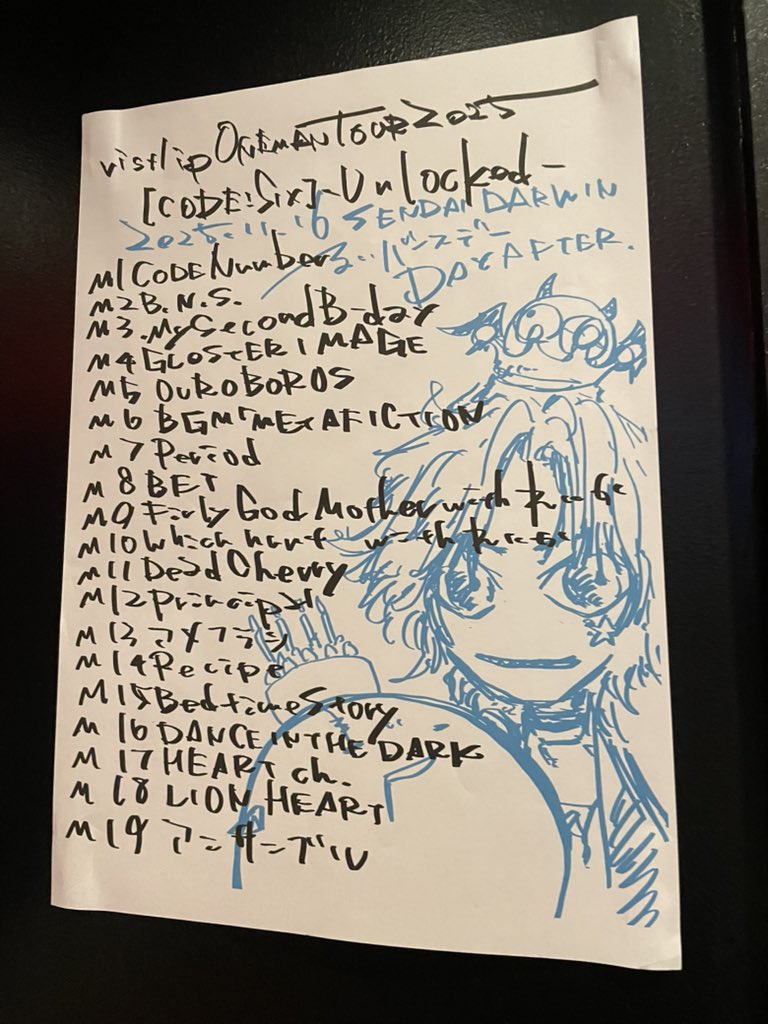 vistlip ONEMAN TOUR 2025
[CODE:Six]-Unlocked-
2025.11.16 SENDAI DARWIN
バースデー
DAY AFTER.
M1 CODE Number
M2 B.N.S.
M3. My Second B-day
M4 GLOSTER IMAGE
M5 OUROBOROS
M6 BGM「METAFICTION
M7 Period
M8 BET
M9 Fairy God Mother with
M10 Which hunt with
M11 Dead Cherry
M12 Principal
M13 アメフラシ
M14 Recipe
M15 Bedtime Story
M16 DANCE IN THE DARK
M17 HEART ch.
M18 LION HEART
M19 アンサンブル